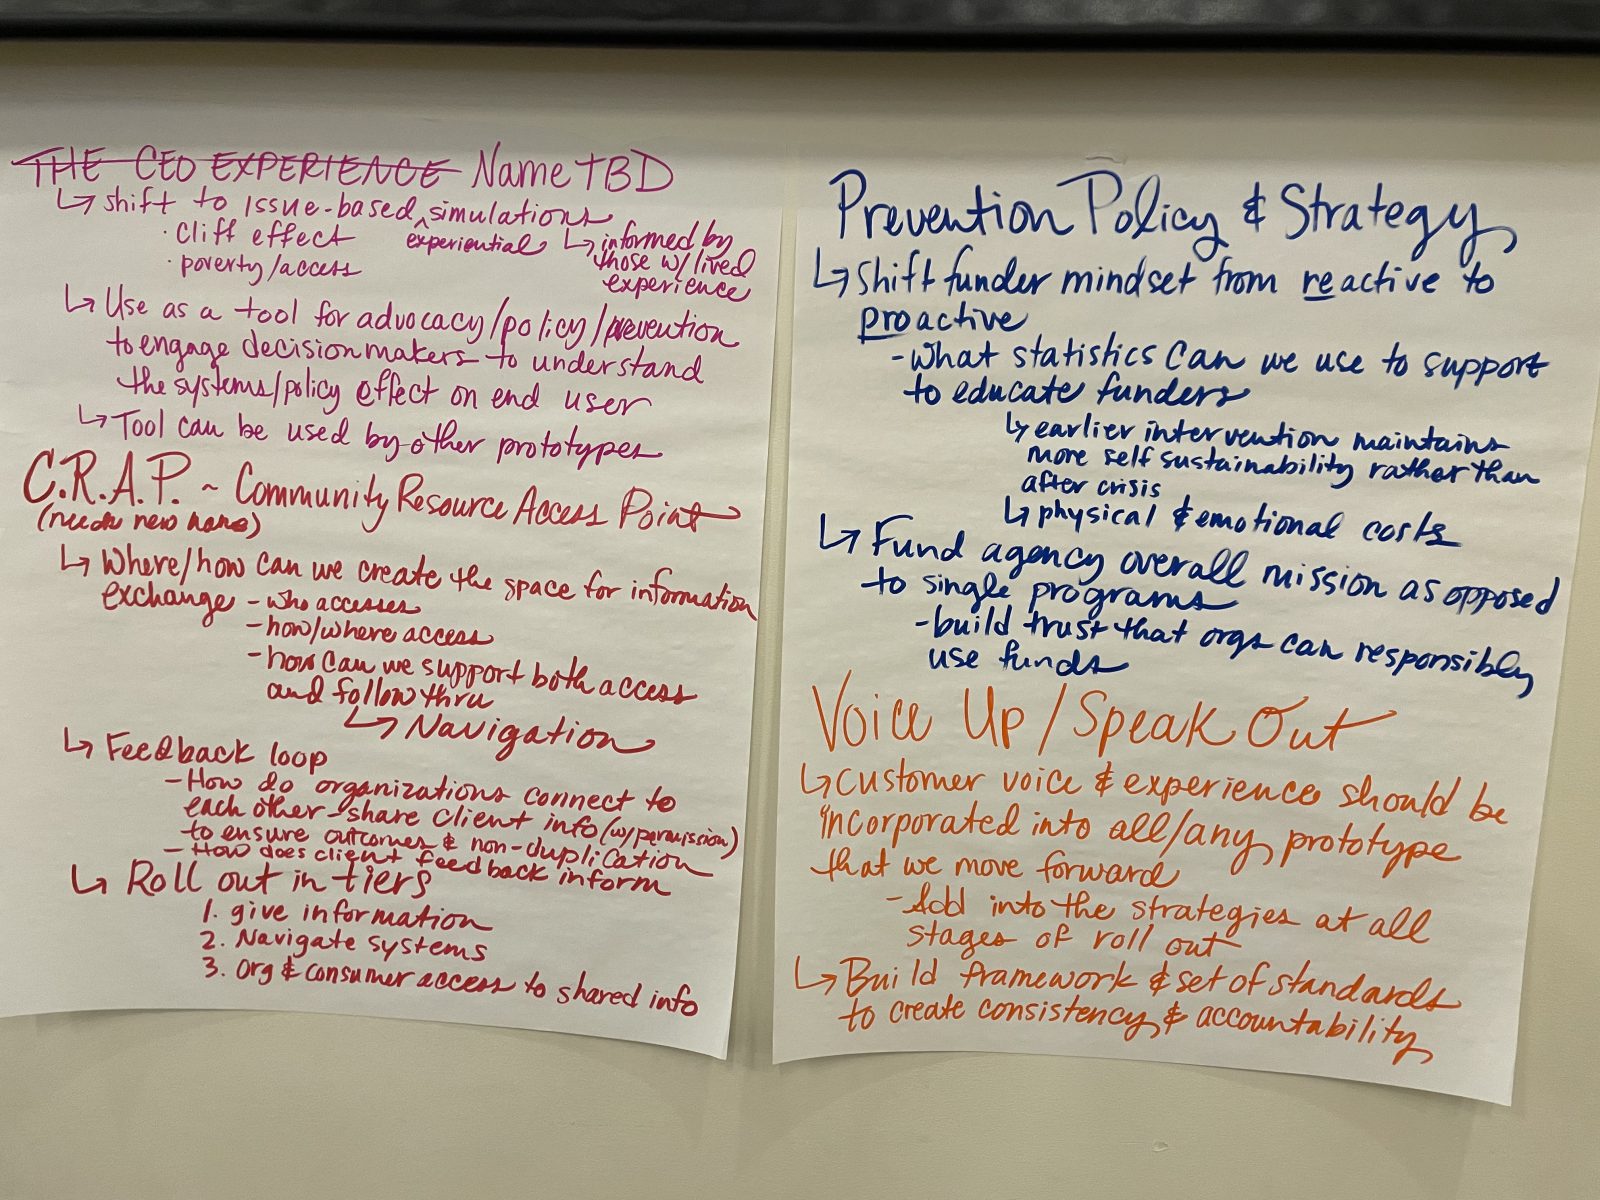 THE CEO EXPERIENCE Name TBD
↳ shift to issue-based ^ simulations
experiential
↳ informed by
those w/ lived
experience
· Cliff effect
· poverty/access
↳ Use as a tool for advocacy/policy/prevention
to engage decision makers to understand
the systems/policy effect on end user
↳ Tool can be used by other prototypes
C.R.A.P. ~ Community Resource Access Point
(needs new name)
↳ Where/how can we create the space for information
exchange - who accesses
- how/where access
- how can we support both access
and follow thru
↳ Navigation
↳ Feedback loop
- How do organizations connect to
each other - share client info (w/permission)
to ensure outcomes & non-duplication
- How does client feedback inform
↳ Roll out in tiers
1. give information
2. Navigate systems
3. Org & consumer access to shared info
Prevention Policy & Strategy
↳ Shift funder mindset from reactive to
proactive
- what statistics can we use to support
to educate funders
↳ earlier intervention maintains
more self sustainability rather than
after crisis
↳ physical & emotional costs
↳ Fund agency overall mission as opposed
to single programs
- build trust that orgs can responsibly
use funds
Voice Up / Speak Out
↳ Customer voice & experience should be
incorporated into all/any prototype
that we move forward
- Add into the strategies at all
stages of roll out
↳ Build framework & set of standards
to create consistency & accountability